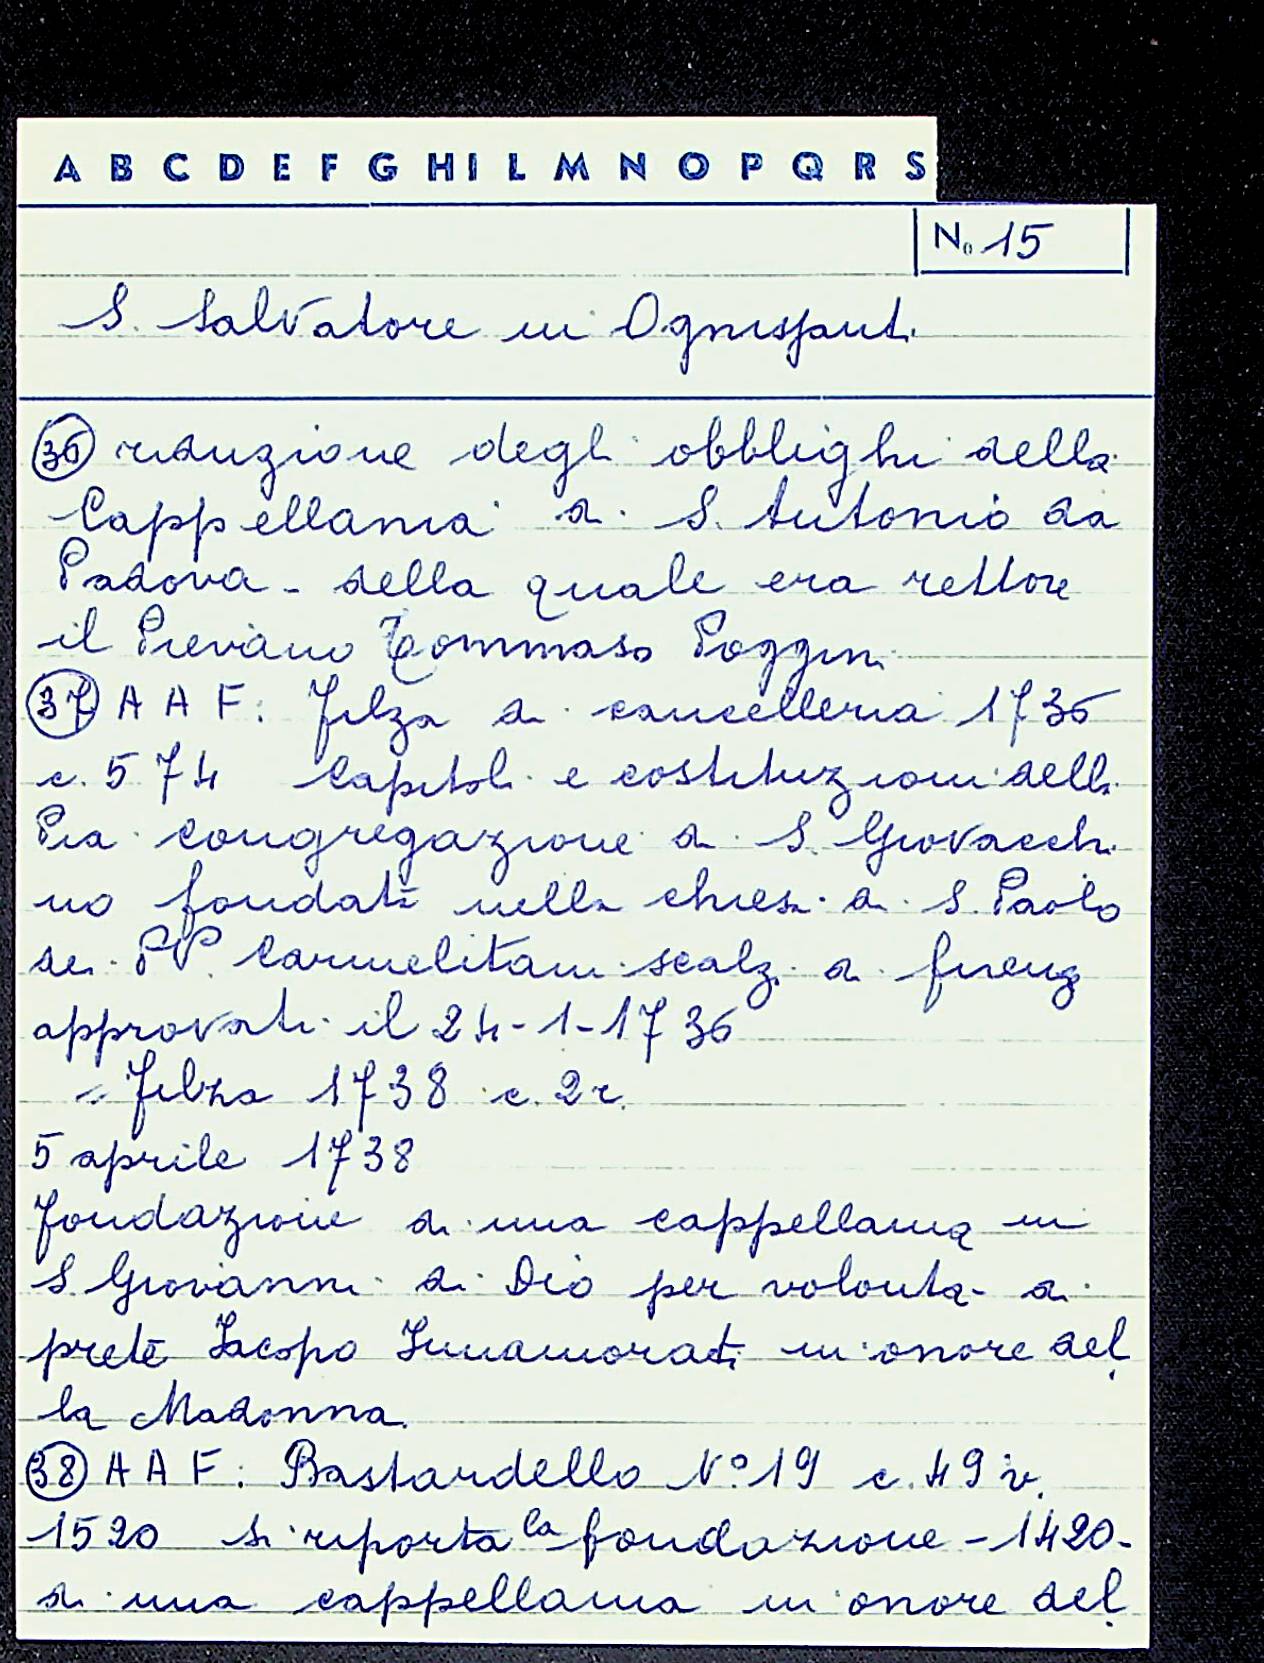 A B C D E F G H I L M N O P Q R S
No 15
S. Salvatore in Ognissanti
36 riduzione degli obblighi della
Cappellania di S. Antonio da
Padova - della quale era rettore
il Pievano Tommaso Poggini
37 A A F: Filza di cancelleria 1736
c. 574 Capitoli e costituzioni della
Pia congregazione di S. Giovacchi
no fondata nella chiesa di S. Paolo
dei PP. Carmelitani scalzi di firenze
approvati il 24-1-1736
" Filza 1738 c. 2r.
5 aprile 1738
fondazione di una cappellania in
S. Giovanni di Dio per volontà di
prete Iacopo Innamorati in onore del
la Madonna.
38 A A F: Bastardello N° 19 c. 49 v.
1520 si riporta la fondazione - 1420 -
di una cappellania in onore del